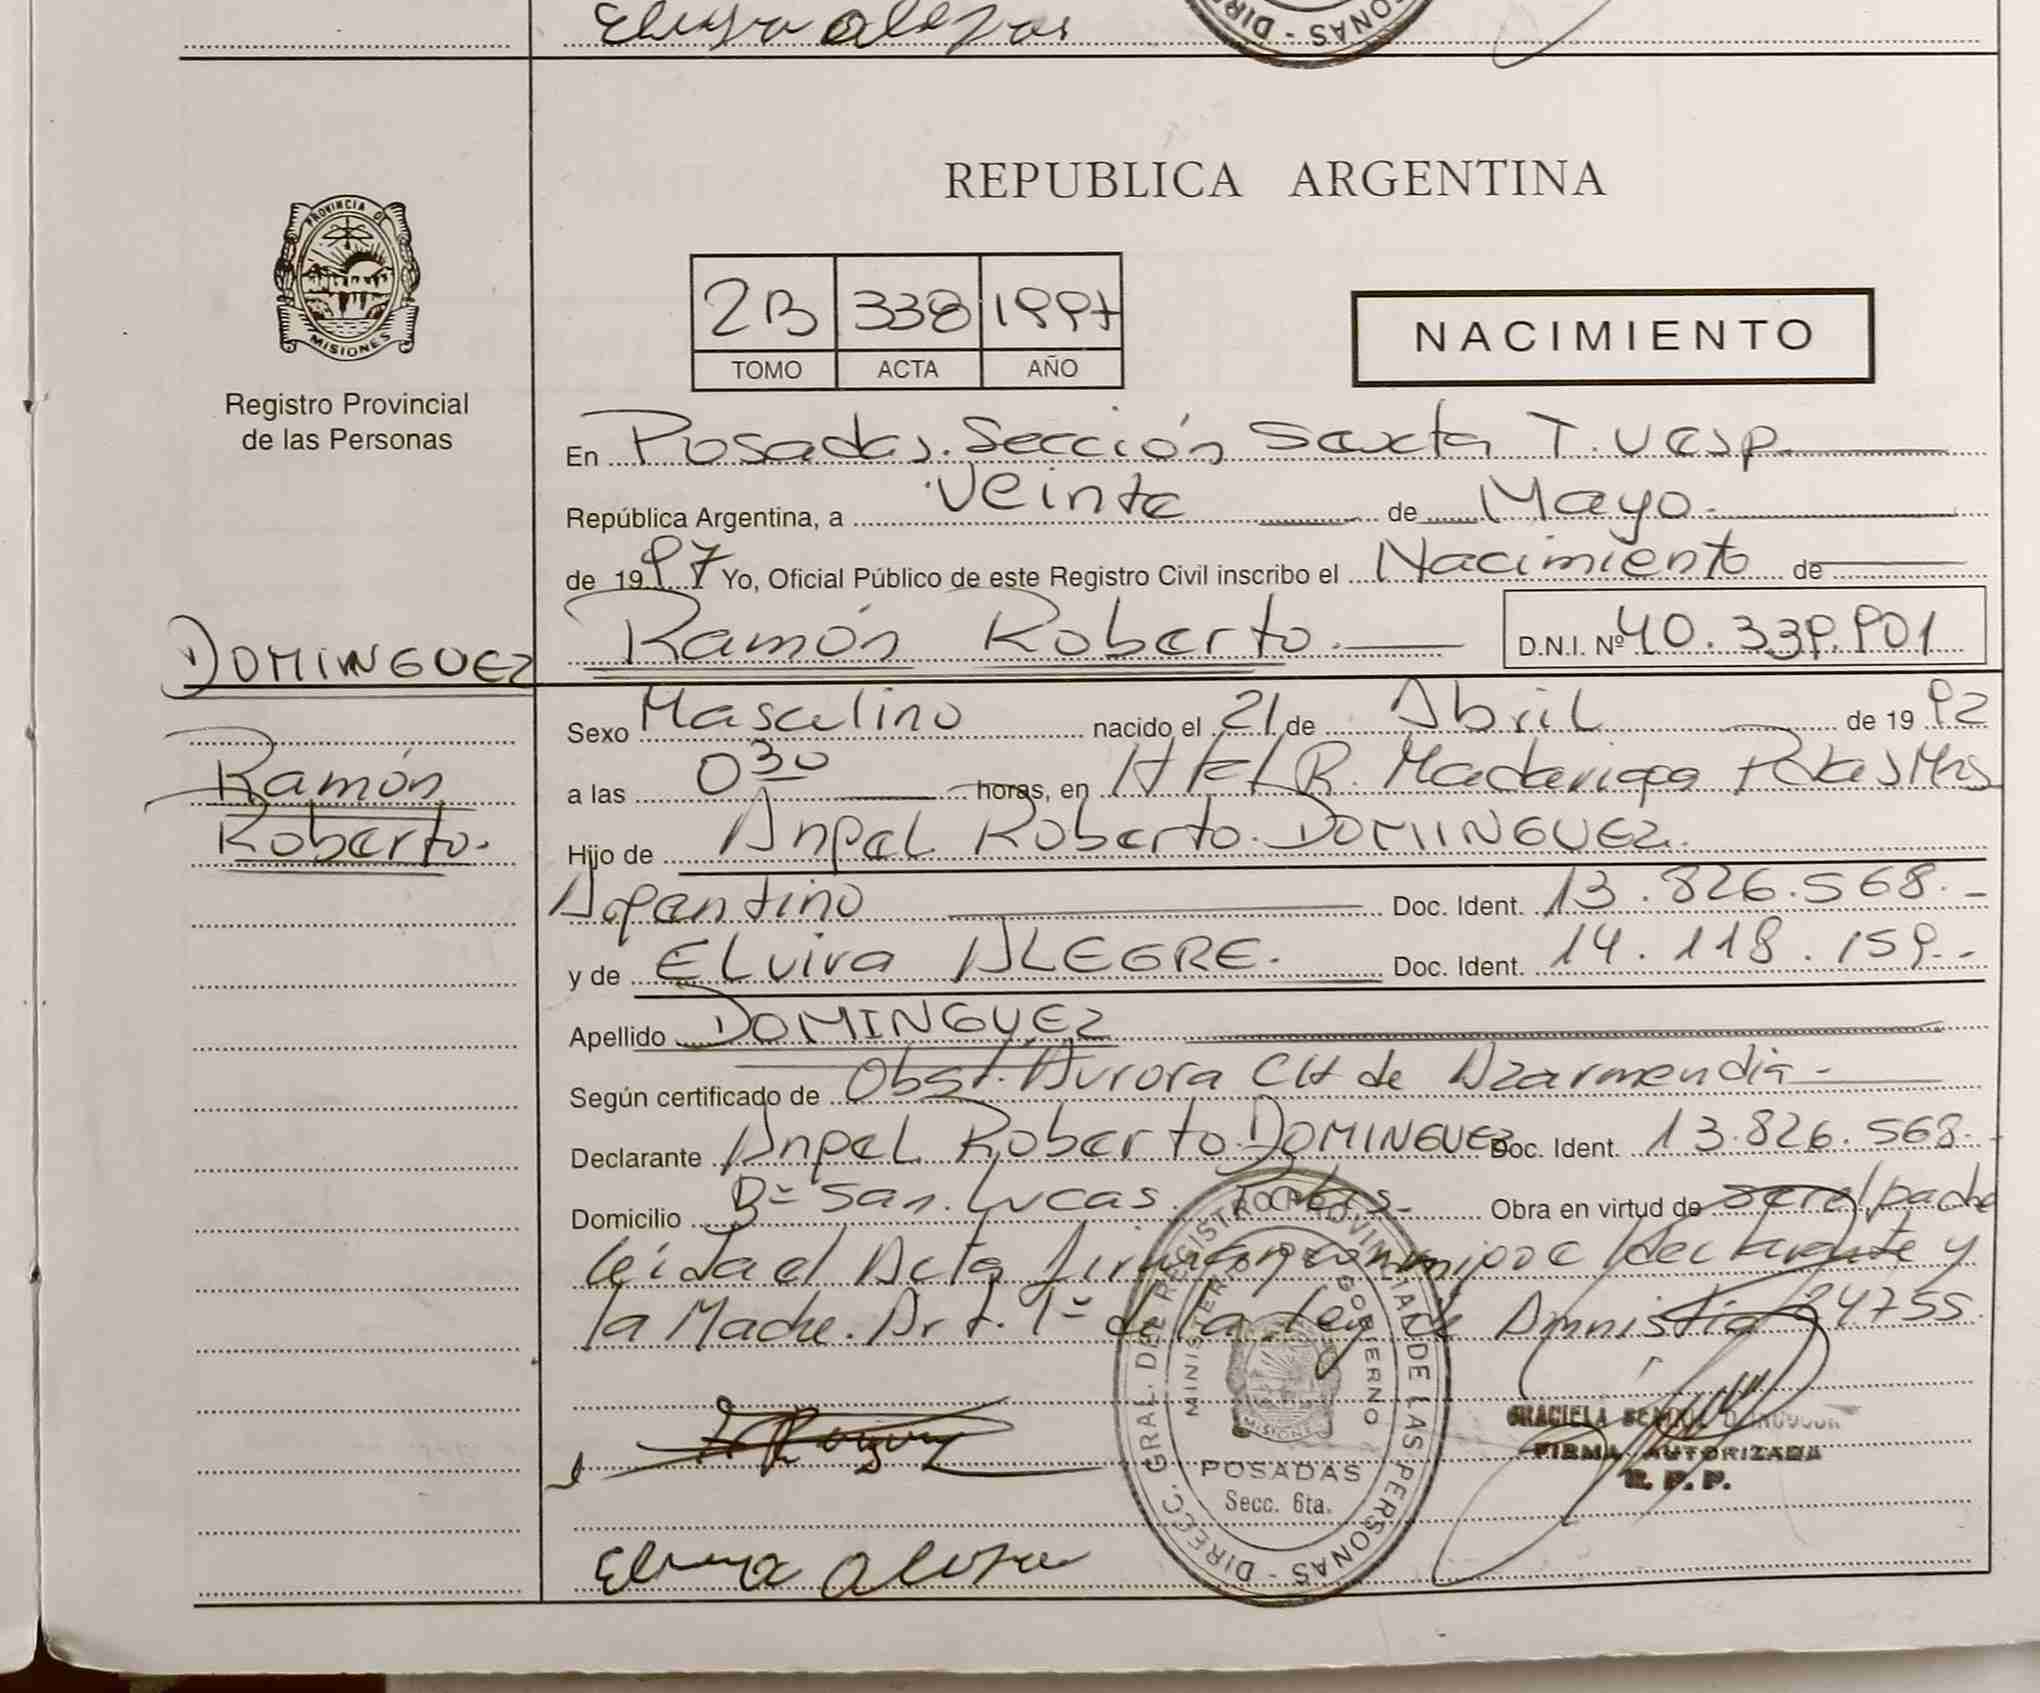 Elvira Alegre
PROVINCIA DE
MISIONES
Registro Provincial
de las Personas
REPUBLICA ARGENTINA
2B 338 1997
TOMO ACTA AÑO
NACIMIENTO
En Posadas. Sección Sexta T. Vesp.
República Argentina, a Veinte de Mayo.
de 1997 Yo, Oficial Público de este Registro Civil inscribo el Nacimiento de
DOMINGUEZ
Ramón Roberto. D.N.I. Nº 40.339.901
Ramón
Roberto.
Sexo Masculino nacido el 21 de Abril de 1992
a las 0 30 horas, en Htel R. Madariaga Pdas Mns
Hijo de Angel Roberto. DOMINGUEZ.
Argentino Doc. Ident. 13.826.568.-
y de ELvira ALEGRE. Doc. Ident. 14.118.159.-
Apellido DOMINGUEZ
Según certificado de Obst. Aurora CH de Azarmendia-
Declarante Angel Roberto. DOMINGUEZ Doc. Ident. 13.826.568.-
Domicilio Bº San. Lucas. Pdas. Obra en virtud de ser el padre
leída el Acta firman conmigo e declarante y
la Madre. Art. 1º de la Ley de Amnistia 24755.
DIRECC. GRAL. DE REGISTRO PROVINCIAL DE LAS PERSONAS
MINISTERIO DE GOBIERNO
MISIONES
POSADAS
Secc. 6ta.
GRACIELA
FIRMA AUTORIZADA
R. P. P.
Elvira Alegre